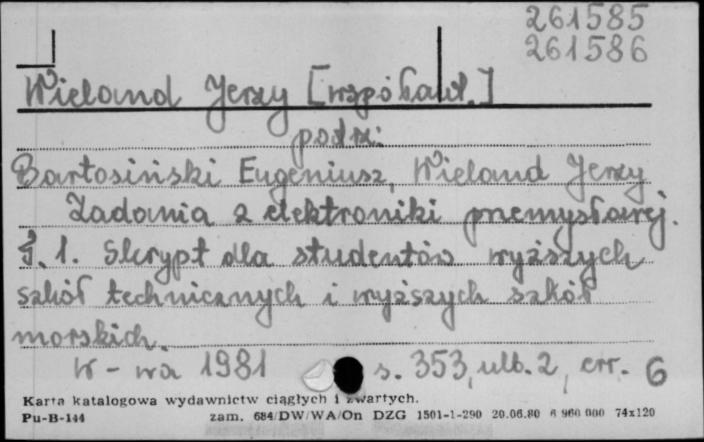 261585
261586
Wieland Jerzy [współaut.]
podz:
Bartosiński Eugeniusz, Wieland Jerzy
Zadania z elektroniki przemysłowej.
1. Skrypt dla studentów wyższych
szkół technicznych i wyższych szkół
morskich.
W-wa 1981 s. 353, ulb. 2, err. 6
Karta katalogowa wydawnictw ciągłych i zwartych.
Pu-B-144 zam. 684/DW/WA/On DZG 1501-1-290 20.06.80 6 960 000 74x120